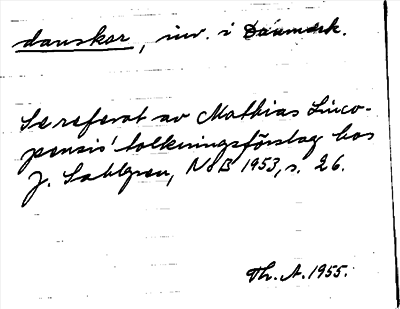 danskar, inv. i Danmark.
Se referat av Mathias Linco-
pensis' tolkningsförslag hos
J. Sahlgren, NoB 1953, s. 26.
Th. A. 1955.